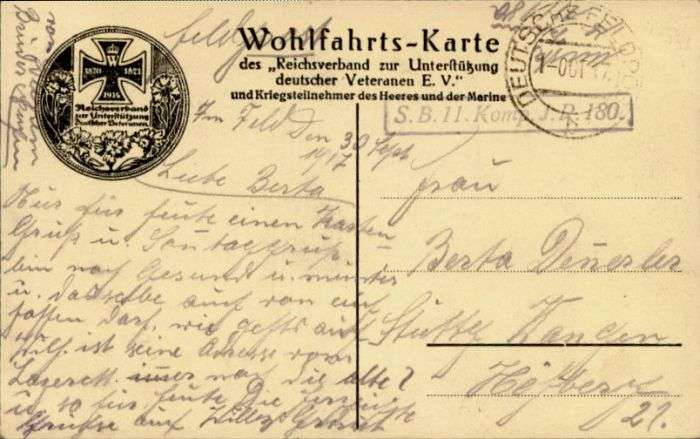 Feldpost
Wohlfahrts-Karte
des „Reichsverband zur Unterstützung
deutscher Veteranen E. V."
und Kriegsteilnehmer des Heeres und der Marine
1870 1871
1914
Reichsverband
zur Unterstützung
Deutscher Veteranen
von
Bruder
DEUTSCHE FELDPOST
S. B. 11. Komp. J. R. 180.
Im Feld den 30 Sept
1917
Liebe Berta
Nur für heute einen Karten
Gruß u. Sontaggruß
bin noch Gesund u. munter
u. dasselbe auch von euch
hoffen darf, wie gehts auch
Wilh. ist seine Adresse vom
Lazarett immer noch die alte?
u. so für heute Die
Grüße auf
Frau
Berta
Stuttg Wangen
22.